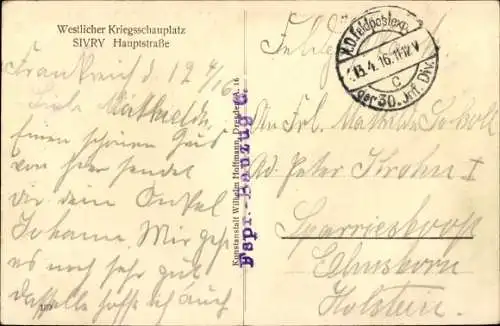 Westlicher Kriegsschauplatz
SIVRY Hauptstraße
Frankreich d. 12 4/16
Liebe Mathilde
Einen schönen Gruß
von hier sendet
dir dein Onkel
Johann. Mir geht
es noch sehr gut
dasselbe hoffe ich auch
Kunstanstalt Wilhelm Hoffmann, Dresden-A. 16
Fspr.-Bauzug 6.
K.D. Feldpostexp.
13.4.16. 11-12 V
c
der 30. Inf. Div.
An Frl.
Ad. Peter Krohn I
Sparrieshoop
Elmshorn
Holstein.